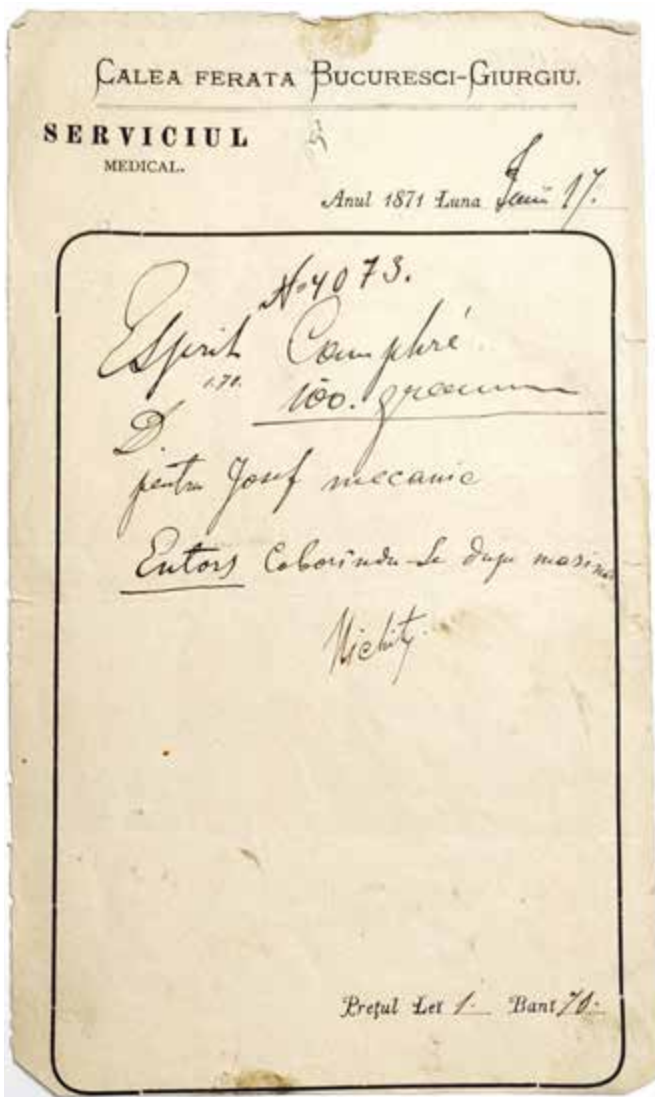 CALEA FERATA BUCURESCI-GIURGIU.
SERVICIUL
MEDICAL.
Anul 1871 Luna Iunii 17.
No 4073.
Esprit Camphré
1.70. 100. gramm
D.
pentru Josef mecanic
Entors coborindu-se dupe masina
Nichity.
Prețul Lei 1. Bani 70.